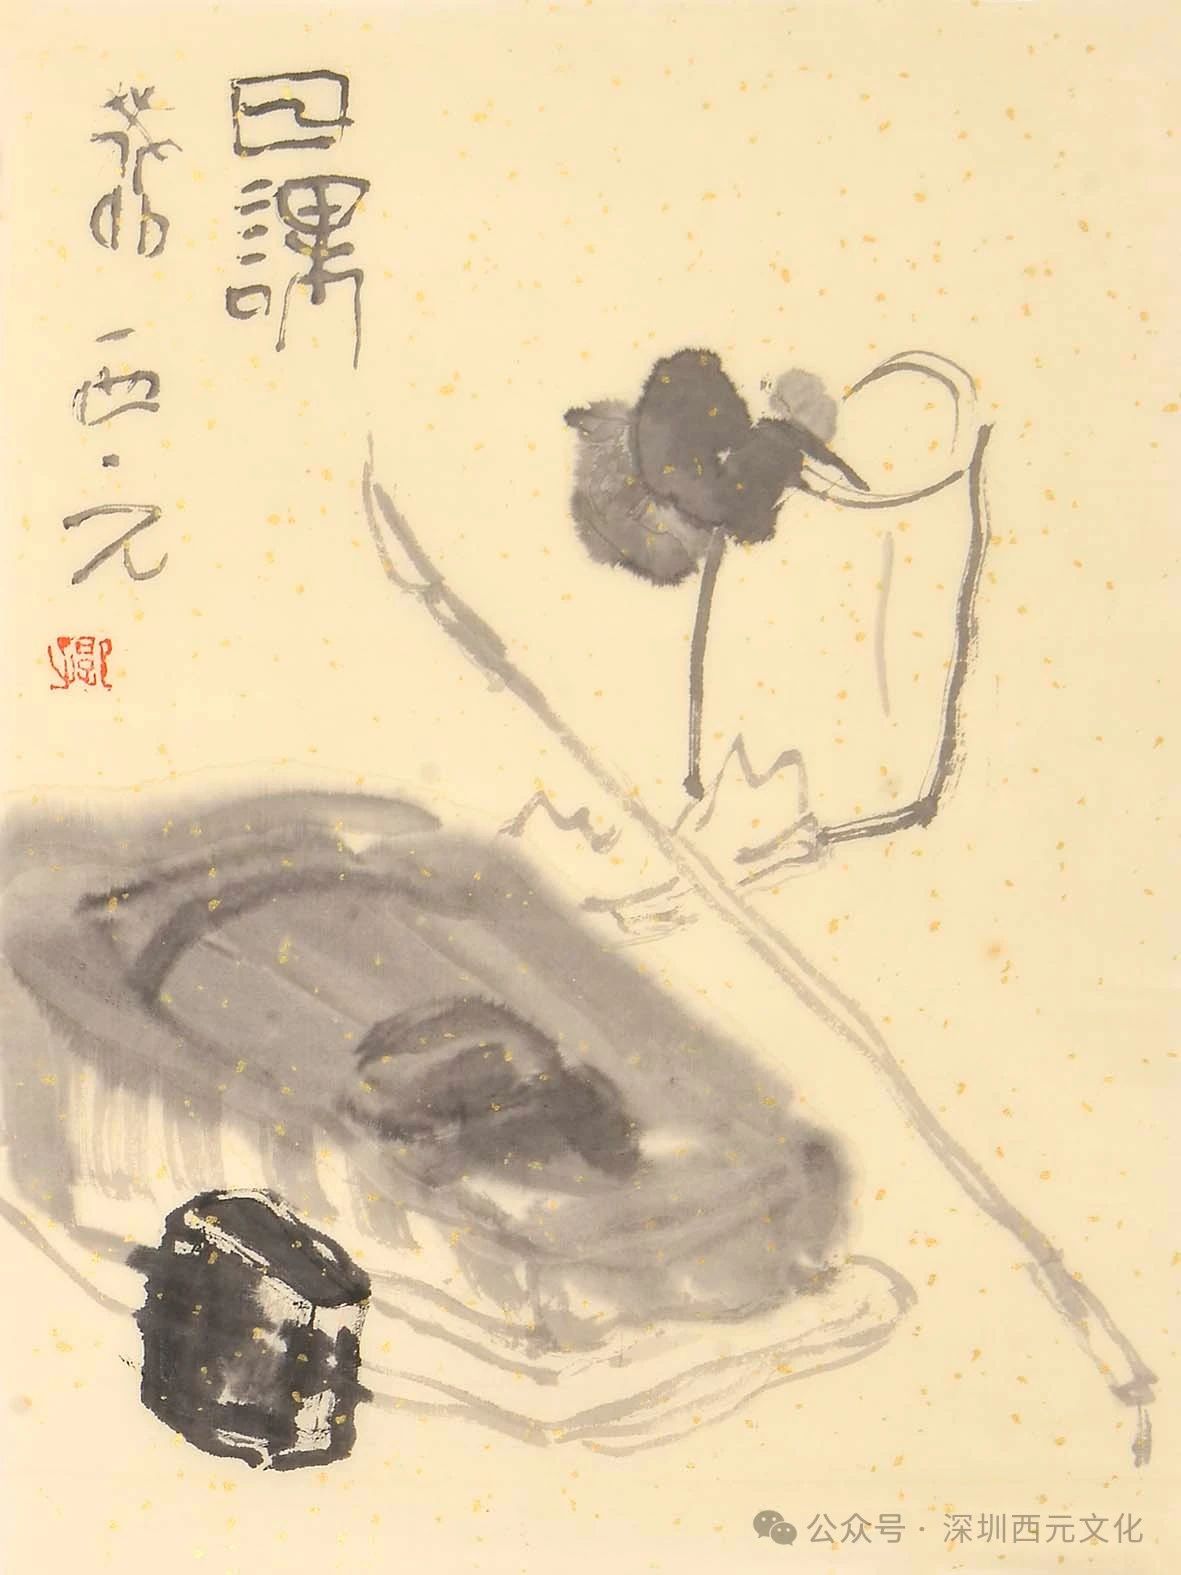 日課
西元
公众号 · 深圳西元文化